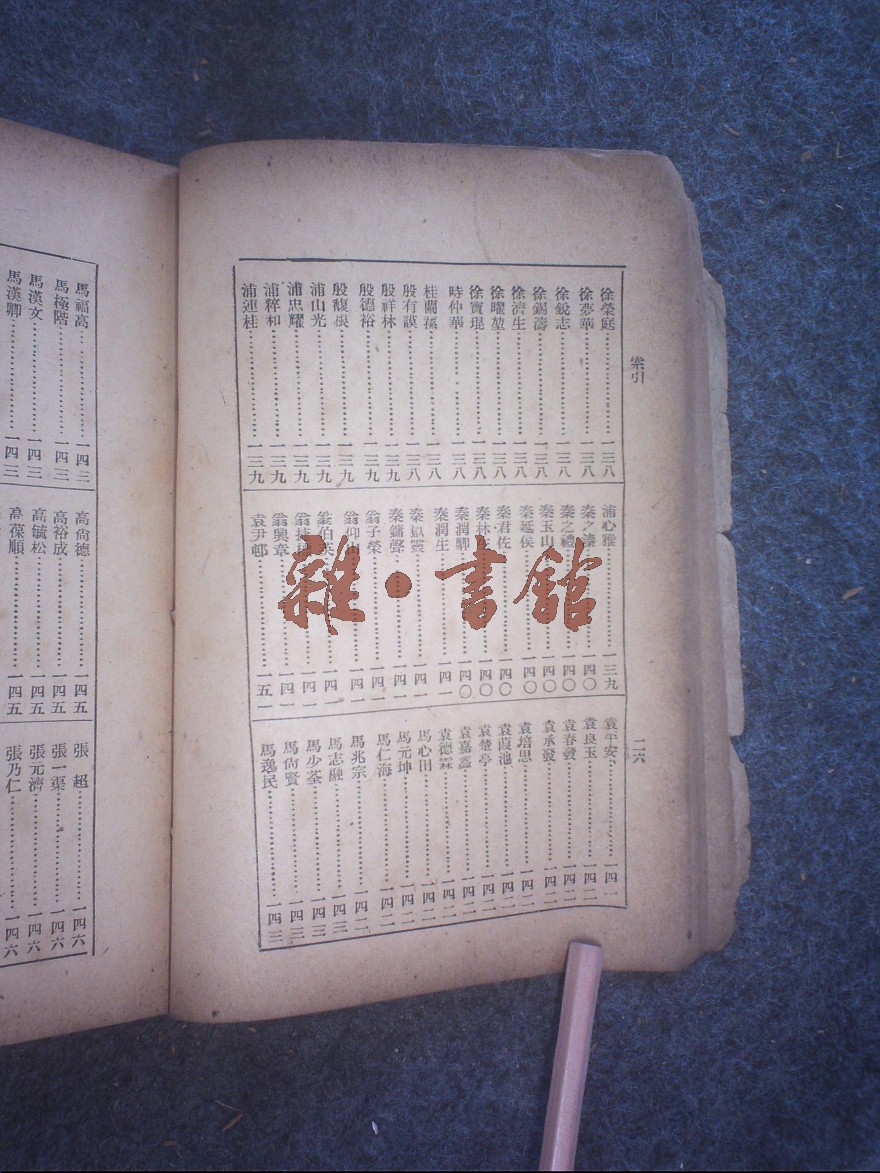 索引
二六
徐榮庭…………一三八
徐夢華…………一三八
徐銳志…………一三八
徐錫濤…………一三八
徐濟生…………一三八
徐曜堃…………一三八
徐寶琨…………一三八
時仲華…………一三八
桂蘭蓀…………一三八
殷有謨…………一三八
殷祥林…………一三九
殷德裕…………一三九
殷馥英…………一三九
浦山光…………一三九
浦忠耀…………一三九
浦粹和…………一三九
浦蓮桂…………一三九
浦心雅…………一三九
秦之…………一四〇
秦之禮…………一四〇
秦玉山…………一四〇
秦延侯…………一四〇
秦君佐…………一四〇
秦林…………一四〇
秦潤卿…………一四〇
秦潤生…………一四一
秦嶽靈…………一四一
秦鏞聲…………一四一
翁子榮…………一四一
翁仰山…………一四一
翁伯英…………一四一
翁…………一四一
翁興章…………一四一
袁尹邨…………一五一
袁平安…………一四一
袁良玉…………一四二
袁春發…………一四二
袁承發…………一四二
袁培思…………一四二
袁葭池…………一四二
袁楚亭…………一四二
袁嘉蓋…………一四二
袁德霖…………一四二
馬心田…………一四二
馬元坤…………一四二
馬仁海…………一四二
馬兆宗…………一四二
馬志融…………一四三
馬少荃…………一四三
馬尙賢…………一四三
馬逸民…………一四三
馬福高…………一四三
馬極階…………一四三
馬漢文…………一四三
馬漢卿…………一四三
高尙德…………一四五
高裕成…………一四五
高毓松…………一四五
高葆順…………一四五
張　超…………一四六
張一渠…………一四六
張元濟…………一四六
張乃仁…………一四六
雜·書館